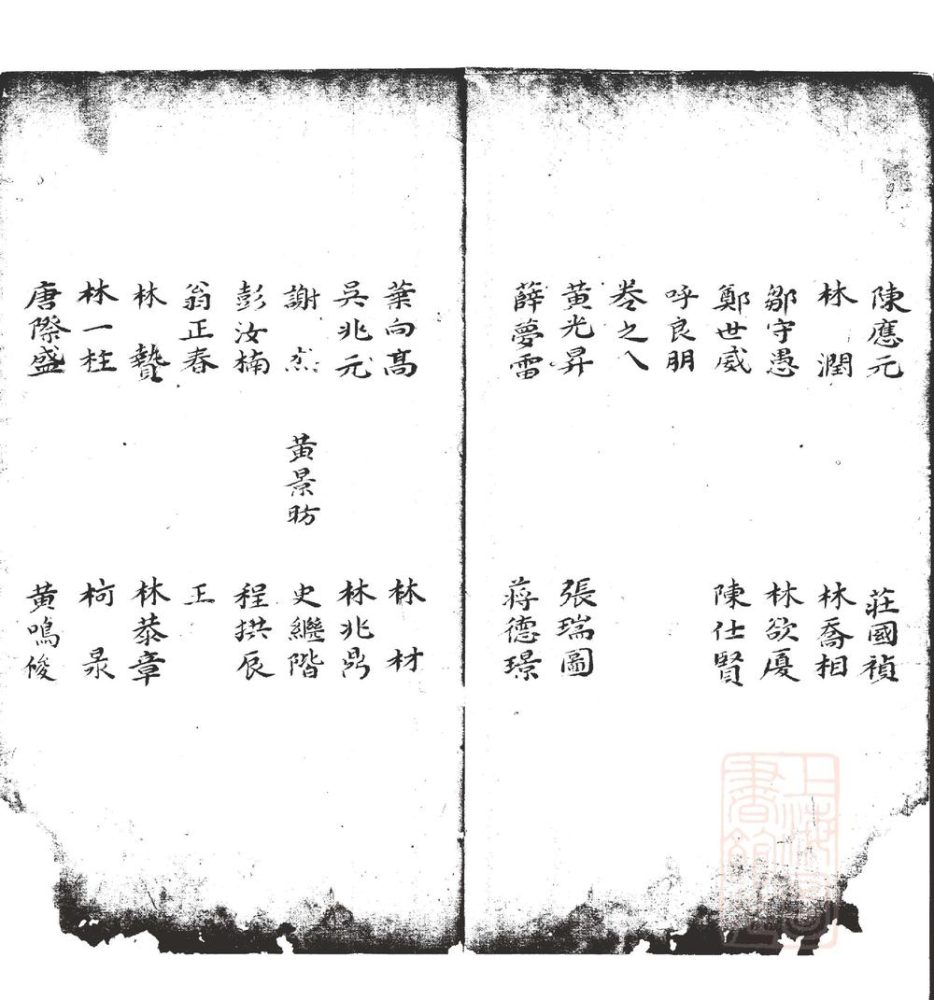 陳應元 莊國禎
林 潤 林喬相
鄒守愚 林欲厦
鄭世威 陳仕賢
呼良朋
卷之八
黃光昇 張瑞圖
薛夢雷 蔣德璟
葉向髙 林 材
吳兆元 林兆鼎
謝 杰 黃景昉 史繼階
彭汝楠 程拱辰
翁正春 王
林 贄 林恭章
林一柱 柯 㫤
唐際盛 黃鳴俊
上海圖書館藏